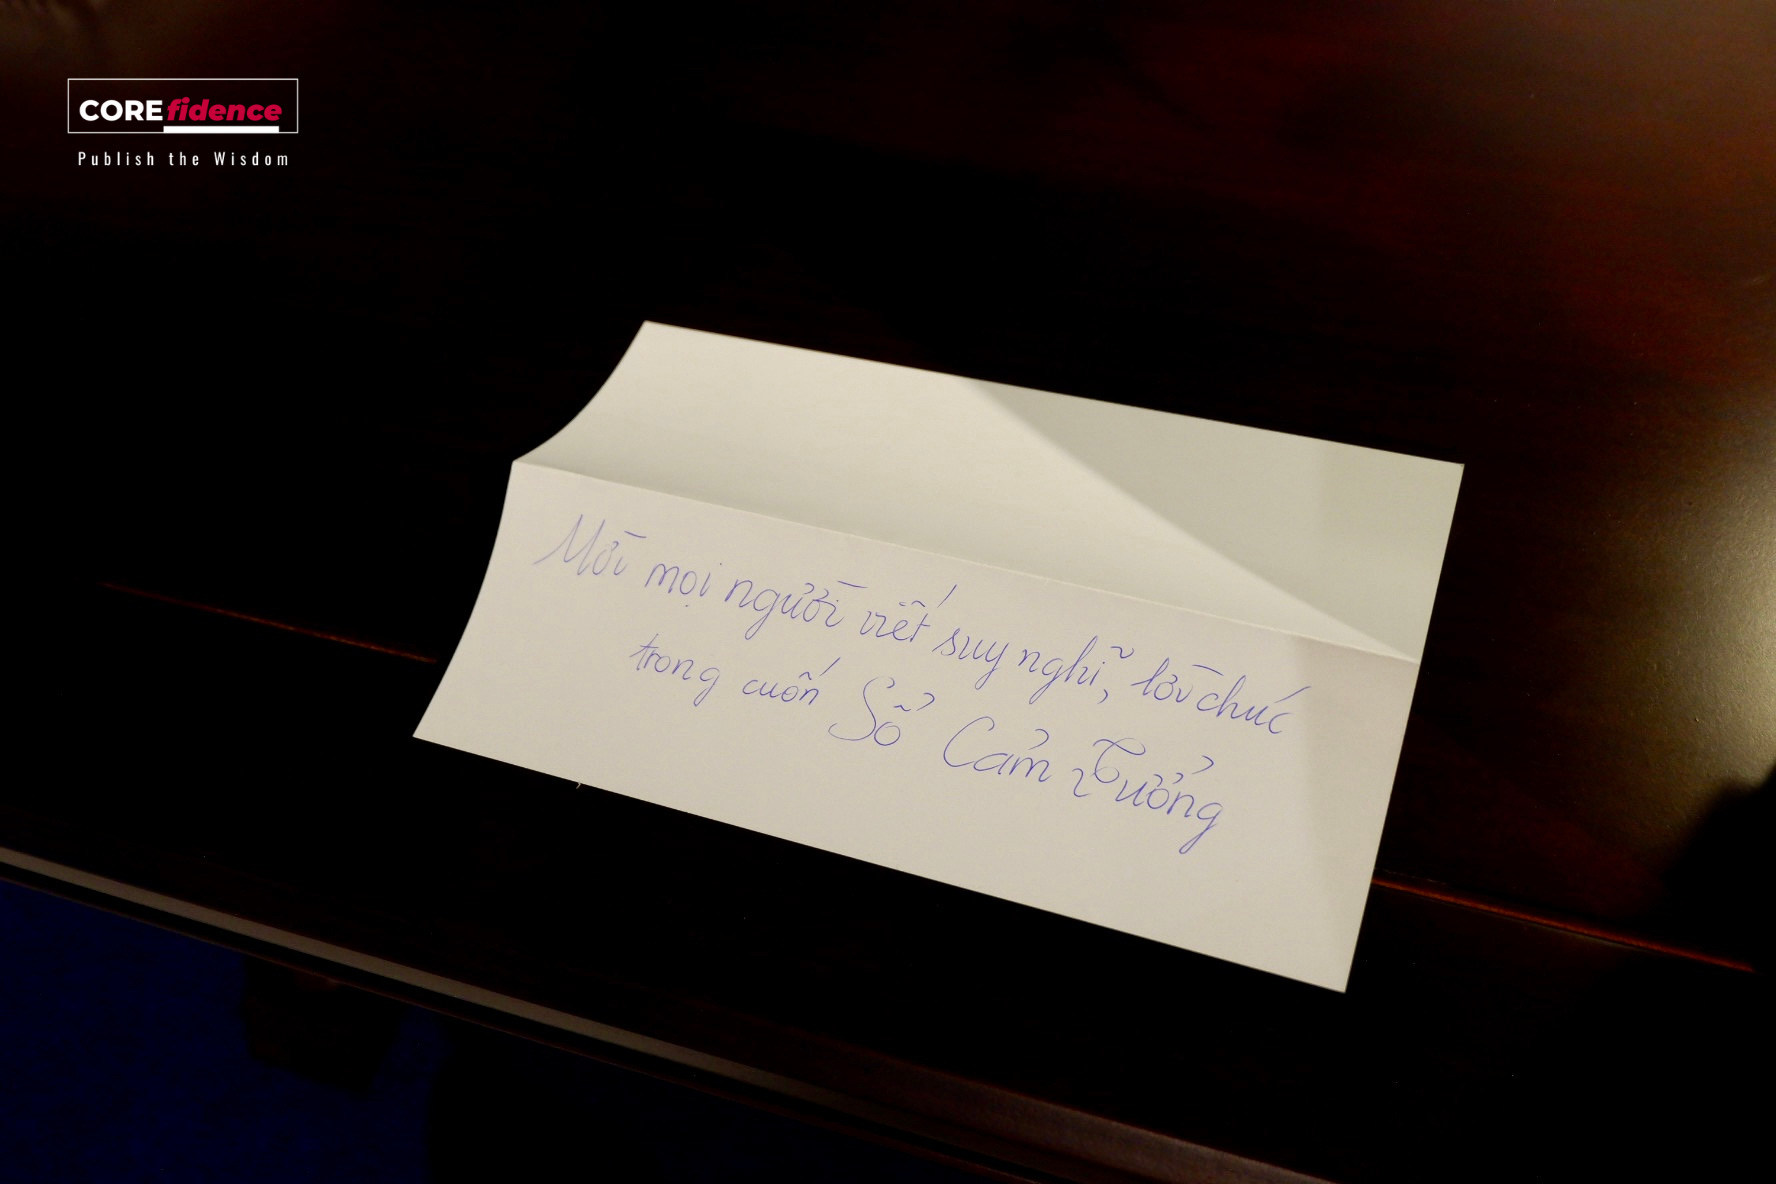 COREfidence
Publish the Wisdom
Mời mọi người viết suy nghĩ, lời chúc
trong cuốn Sổ Cảm Tưởng